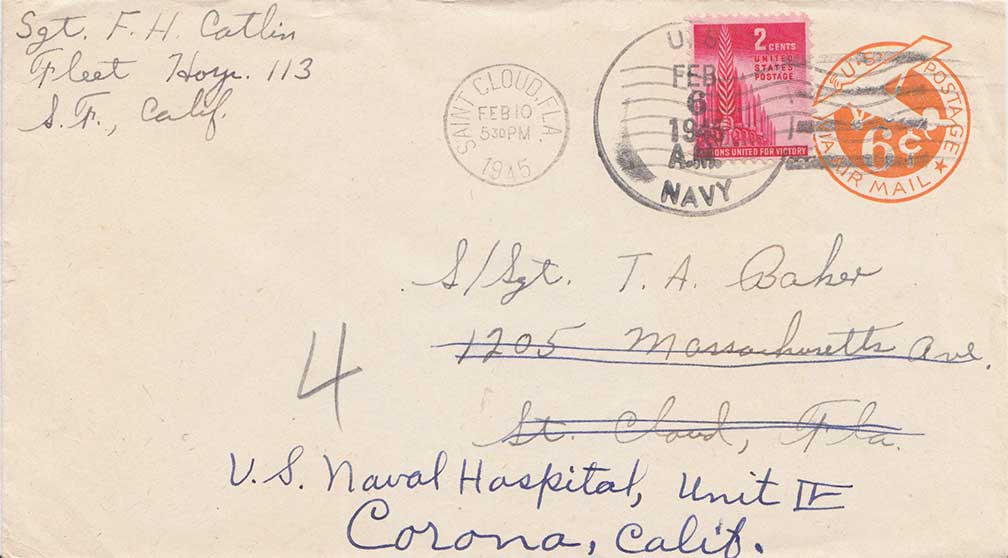 Sgt. F. H. Catlin
Fleet Hosp. 113
S. F., Calif.
SAINT CLOUD, FLA.
FEB 10
5 30 PM
1945
U. S.
FEB
6
1945
A.M.
NAVY
2 CENTS
UNITED
STATES
POSTAGE
NATIONS UNITED FOR VICTORY
U.S. POSTAGE
6¢
VIA AIR MAIL
S/Sgt. T. A. Baker
1205 Massachusetts Ave.
St. Cloud, Fla.
4
U.S. Naval Hospital, Unit IV
Corona, Calif.